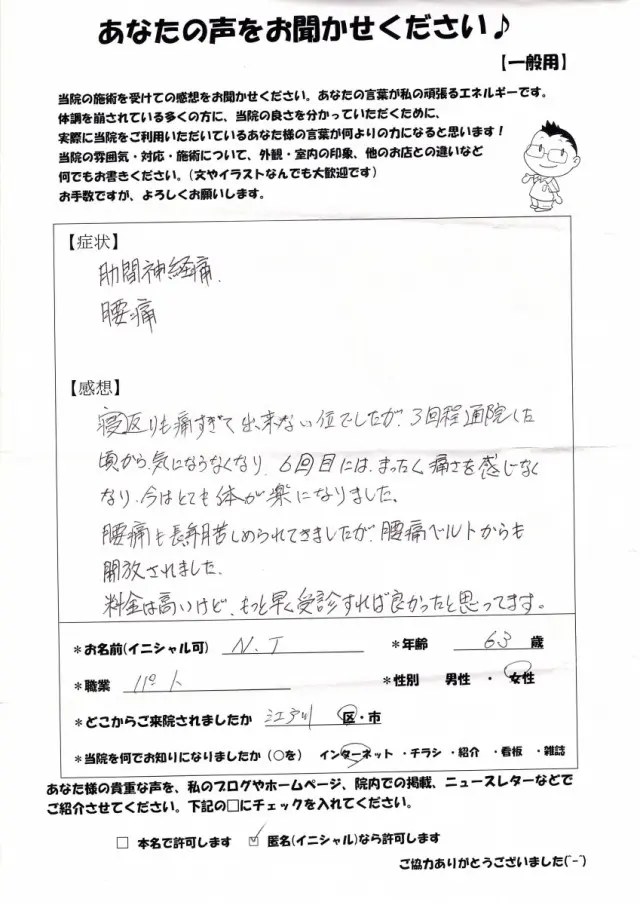 あなたの声をお聞かせください♪
【一般用】
当院の施術を受けての感想をお聞かせください。あなたの言葉が私の頑張るエネルギーです。
体調を崩されている多くの方に、当院の良さを分かっていただくために、
実際に当院をご利用いただいているあなた様の言葉が何よりの力になると思います！
当院の雰囲気・対応・施術について、外観・室内の印象、他のお店との違いなど
何でもお書きください。（文やイラストなんでも大歓迎です）
お手数ですが、よろしくお願いします。
【症状】
肋間神経痛.
腰痛
【感想】
寝返りも痛すぎて出来ない位でしたが、3回程通院した
頃から、気にならなくなり、6回目には、まったく痛さを感じなく
なり、今はとても体が楽になりました。
腰痛も長年苦しめられてきましたが、腰痛ベルトからも
開放されました。
料金は高いけど、もっと早く受診すれば良かったと思ってます。
＊お名前(イニシャル可) N.T ＊年齢 63 歳
＊職業 パート ＊性別 男性 ・ 女性
＊どこからご来院されましたか 江戸川 区・市
＊当院を何でお知りになりましたか（○を） インターネット ・チラシ ・紹介 ・看板 ・雑誌
あなた様の貴重な声を、私のブログやホームページ、院内での掲載、ニュースレターなどで
ご紹介させてください。下記の□にチェックを入れてください。
□ 本名で許可します ☑ 匿名(イニシャル)なら許可します
ご協力ありがとうございました(^-^)